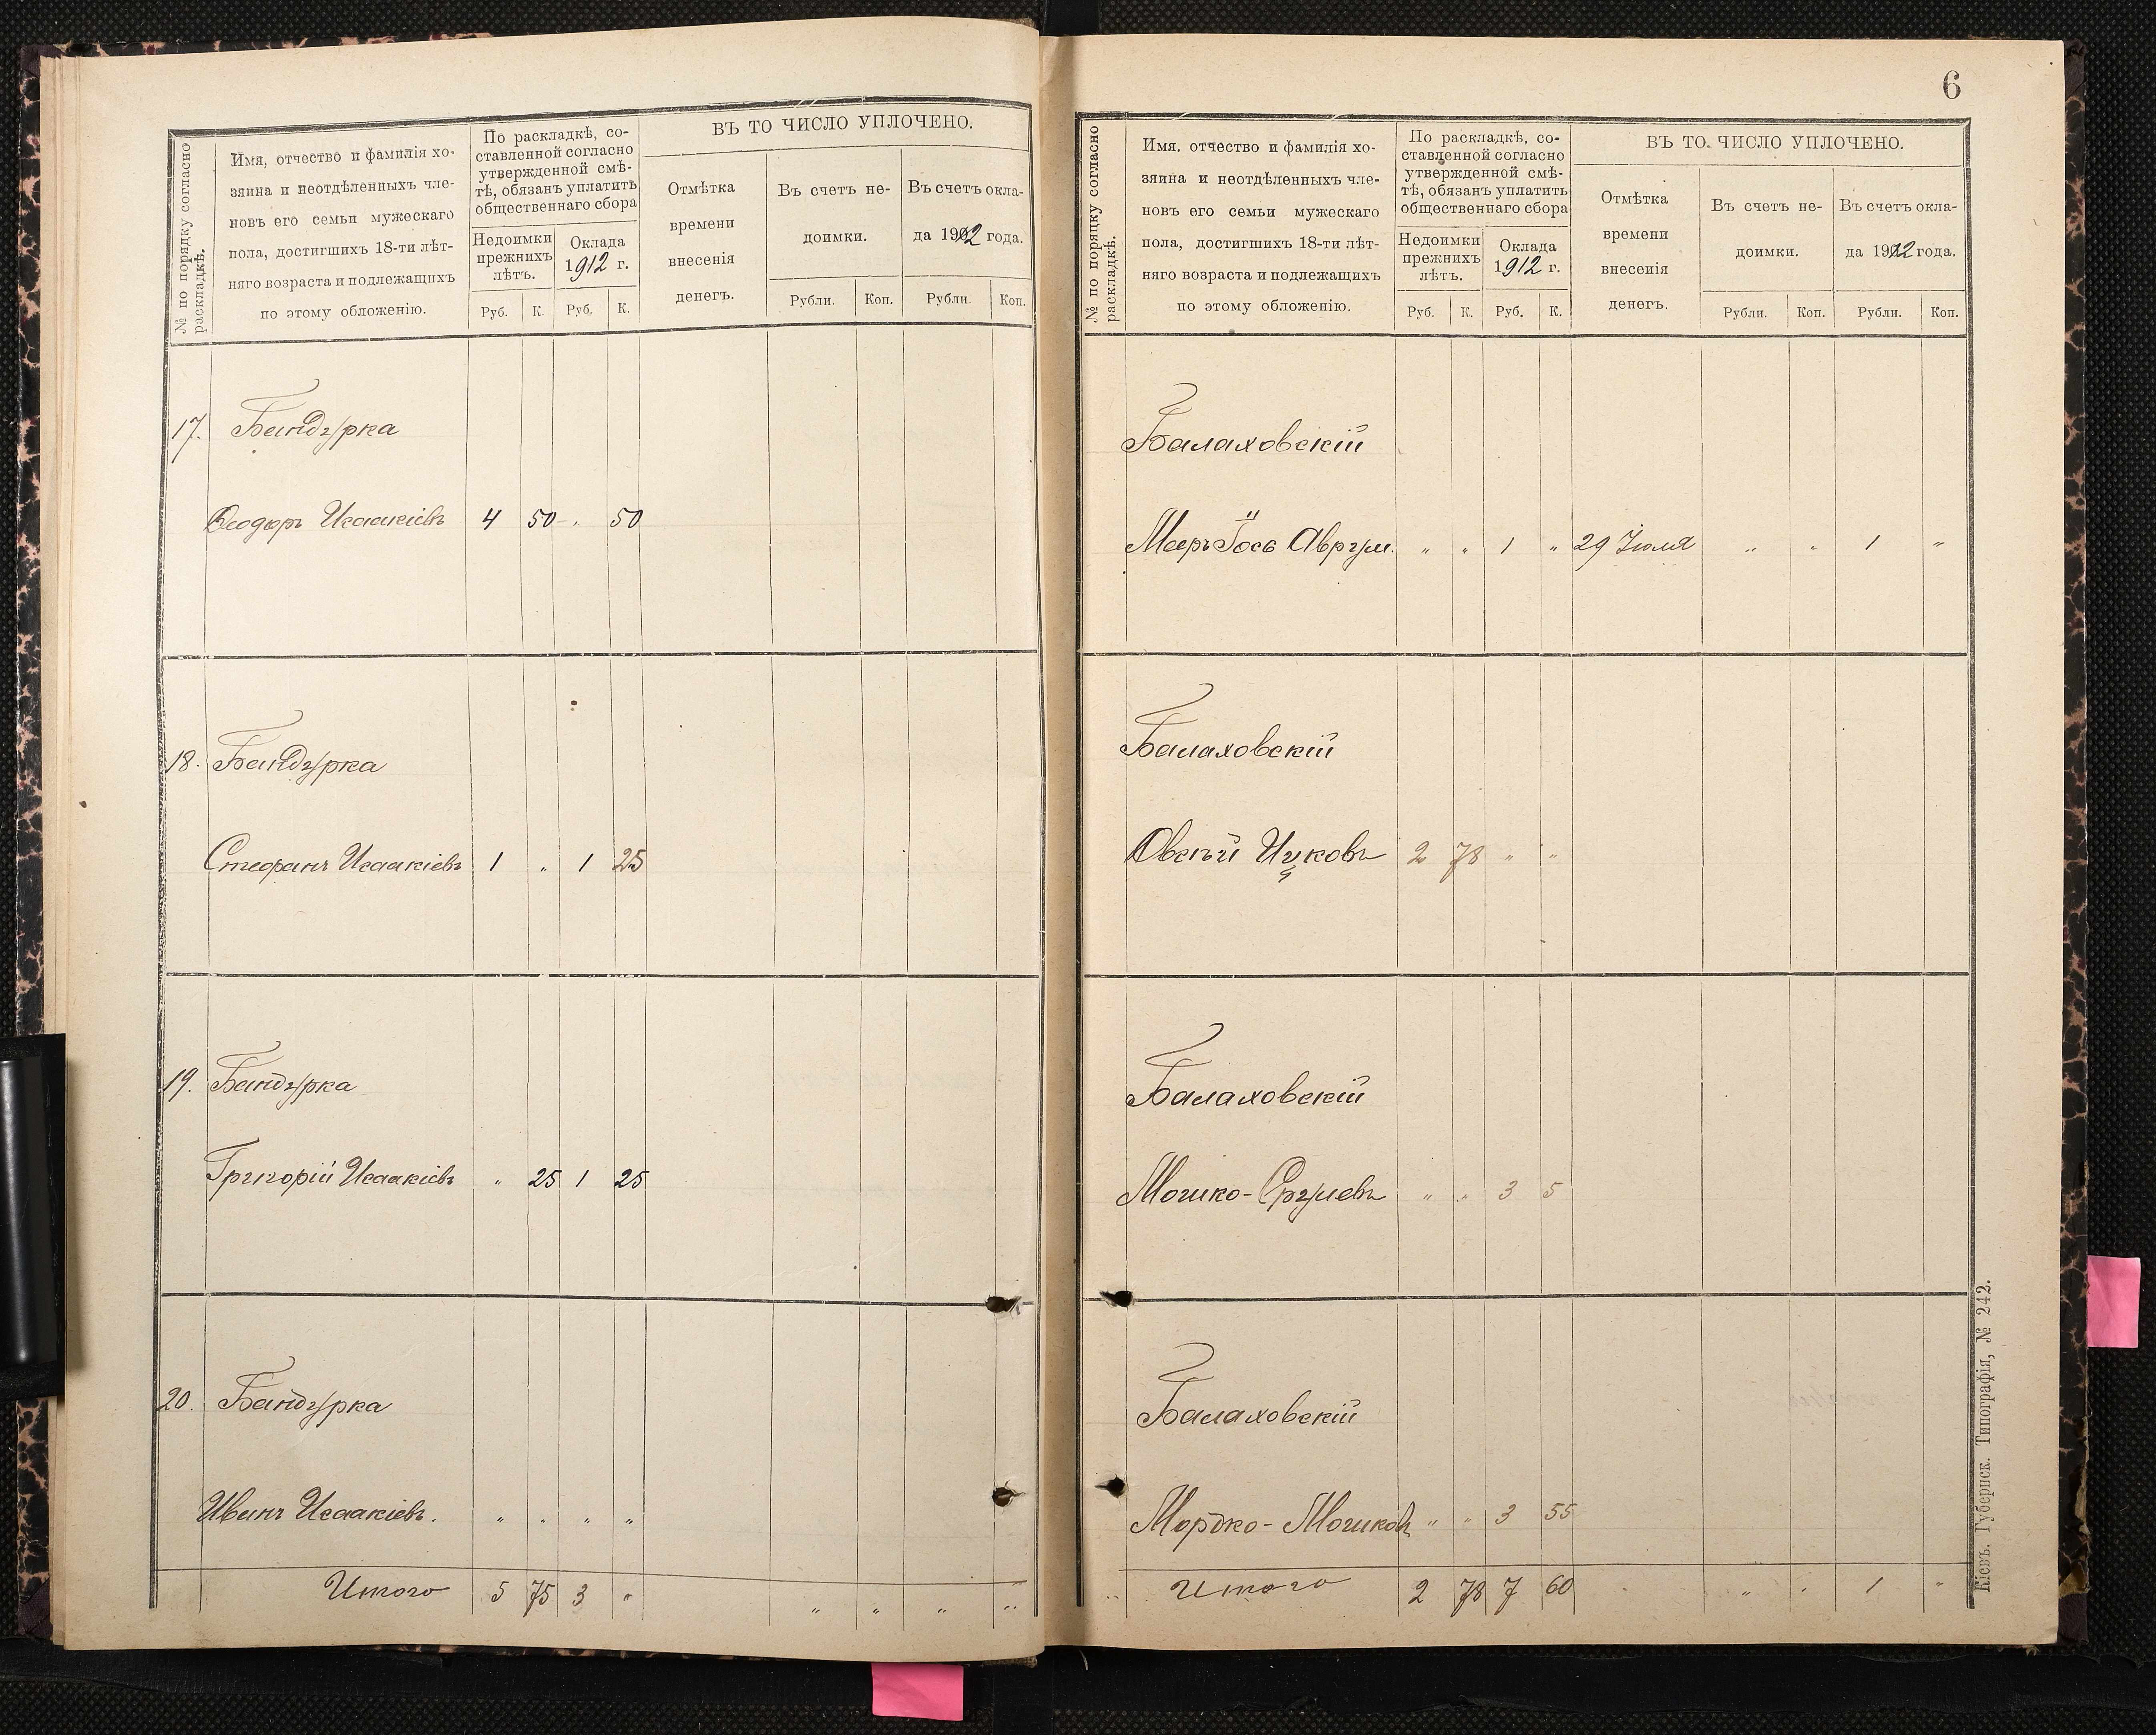 № по порядку согласно
раскладкѣ.
Имя, отчество и фамилія хо-
зяина и неотдѣленныхъ чле-
новъ его семьи мужескаго
пола, достигшихъ 18-ти лѣт-
няго возраста и подлежащихъ
по этому обложенію.
По раскладкѣ, со-
ставленной согласно
утвержденной смѣ-
тѣ, обязанъ уплатить
общественнаго сбора
Недоимки
прежнихъ
лѣтъ.
Оклада
1912 г.
Руб. К. Руб. К.
ВЪ ТО ЧИСЛО УПЛОЧЕНО.
Отмѣтка
времени
внесенія
денегъ.
Въ счетъ не-
доимки.
Въ счетъ окла-
да 1912 года.
Рубли. Коп. Рубли. Коп.
17. Бандурка
Ѳеодоръ Исаакіевъ 4 50 " 50
18. Бандурка
Стефанъ Исаакіевъ 1 " 1 25
19. Бандурка
Григорій Исаакіевъ " 25 1 25
20. Бандурка
Иванъ Исаакіевъ. " " " "
Итого 5 75 3 " " " " "
6
№ по порядку согласно
раскладкѣ.
Имя. отчество и фамилія хо-
зяина и неотдѣленныхъ чле-
новъ его семьи мужескаго
пола, достигшихъ 18-ти лѣт-
няго возраста и подлежащихъ
по этому обложенію.
По раскладкѣ, со-
ставленной согласно
утвержденной смѣ-
тѣ, обязанъ уплатить
общественнаго сбора
Недоимки
прежнихъ
лѣтъ.
Оклада
1912 г.
Руб. К. Руб. К.
ВЪ ТО ЧИСЛО УПЛОЧЕНО.
Отмѣтка
времени
внесенія
денегъ.
Въ счетъ не-
доимки.
Въ счетъ окла-
да 1912 года.
Рубли. Коп. Рубли. Коп.
Балаховскій
Мееръ Іось Аврум. " " 1 " 29 Іюля " " 1 "
Балаховскій
Овсѣй Ицковъ 2 78 " "
Балаховскій
Мошко-Срулевъ " " 3 5
Балаховскій
Мордко-Мошковъ " " 3 55
Итого 2 78 7 60 " " 1 "
Кіевъ. Губернск. Типографія, № 242.